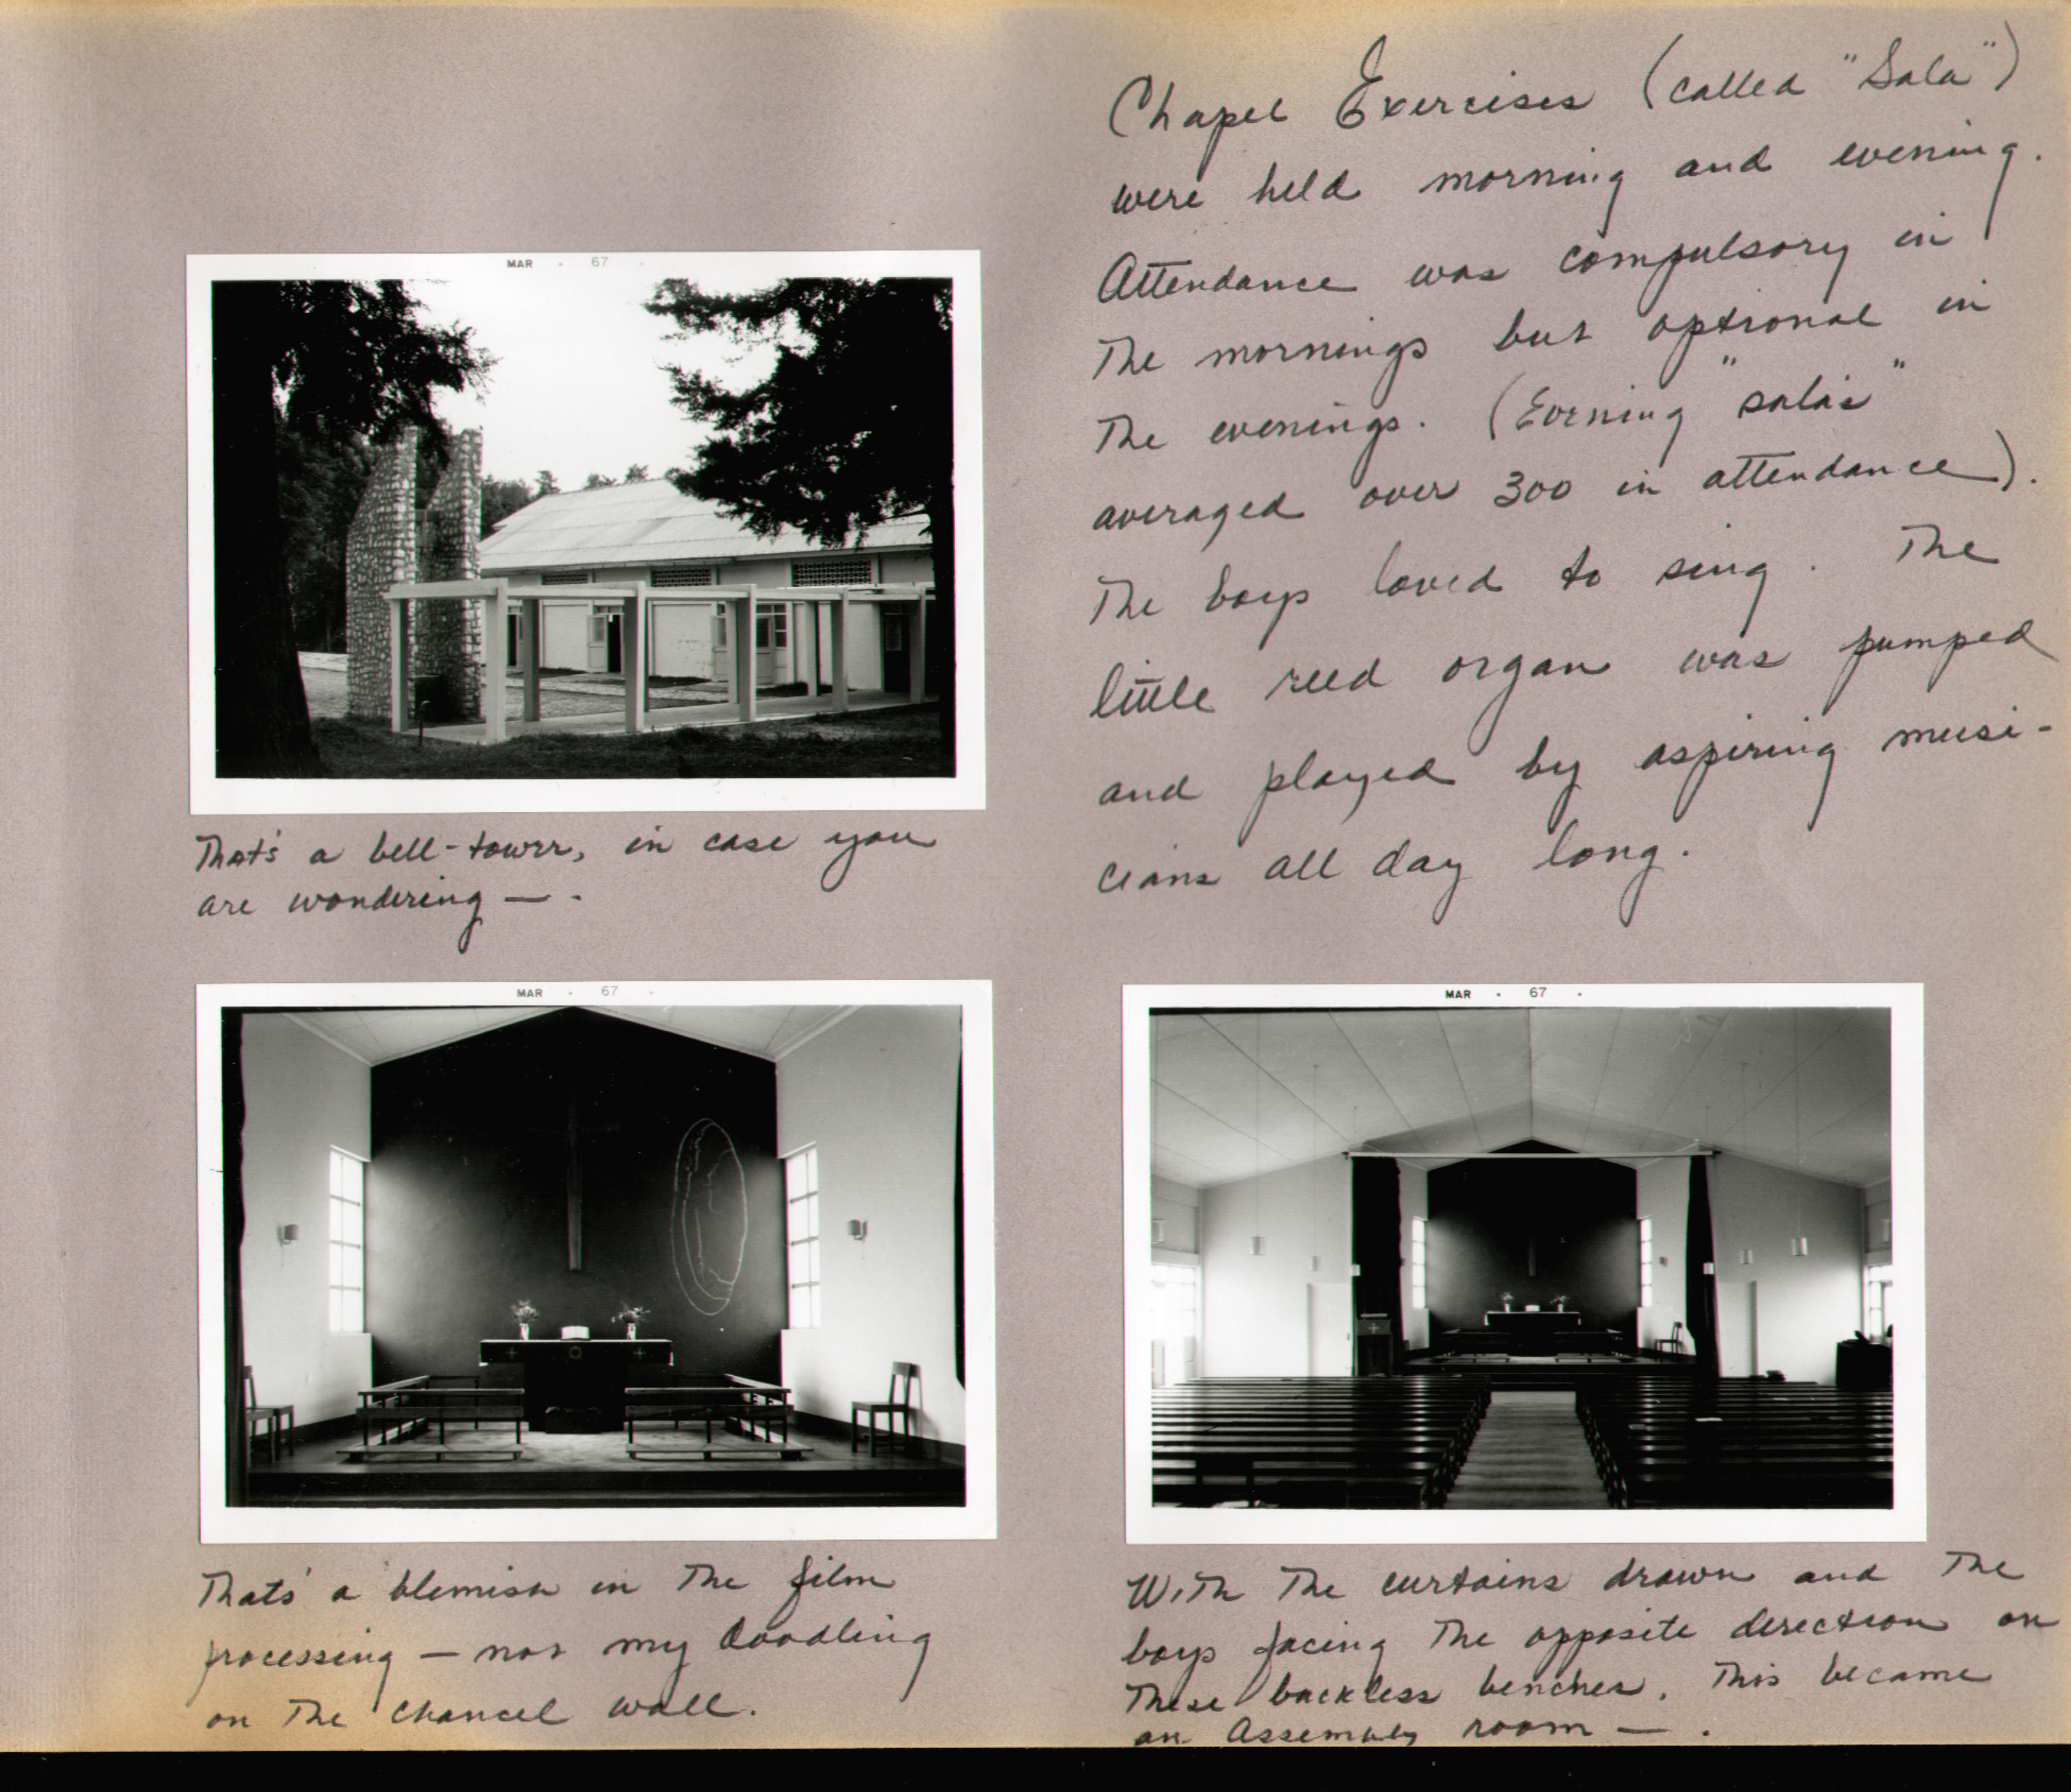 Chapel Exercises (called "Sala")
were held morning and evening.
Attendance was compulsory in
the mornings but optional in
the evenings. (Evening "sala's"
averaged over 300 in attendance).
The boys loved to sing. The
little reed organ was pumped
and played by aspiring musi-
cians all day long.
MAR · 67 ·
That's a bell-tower, in case you
are wondering — .
MAR · 67 ·
That's a blemish in the film
processing — not my doodling
on the chancel wall.
MAR · 67 ·
With the curtains drawn and the
boys facing the opposite direction on
these backless benches, this became
an Assembly room — .